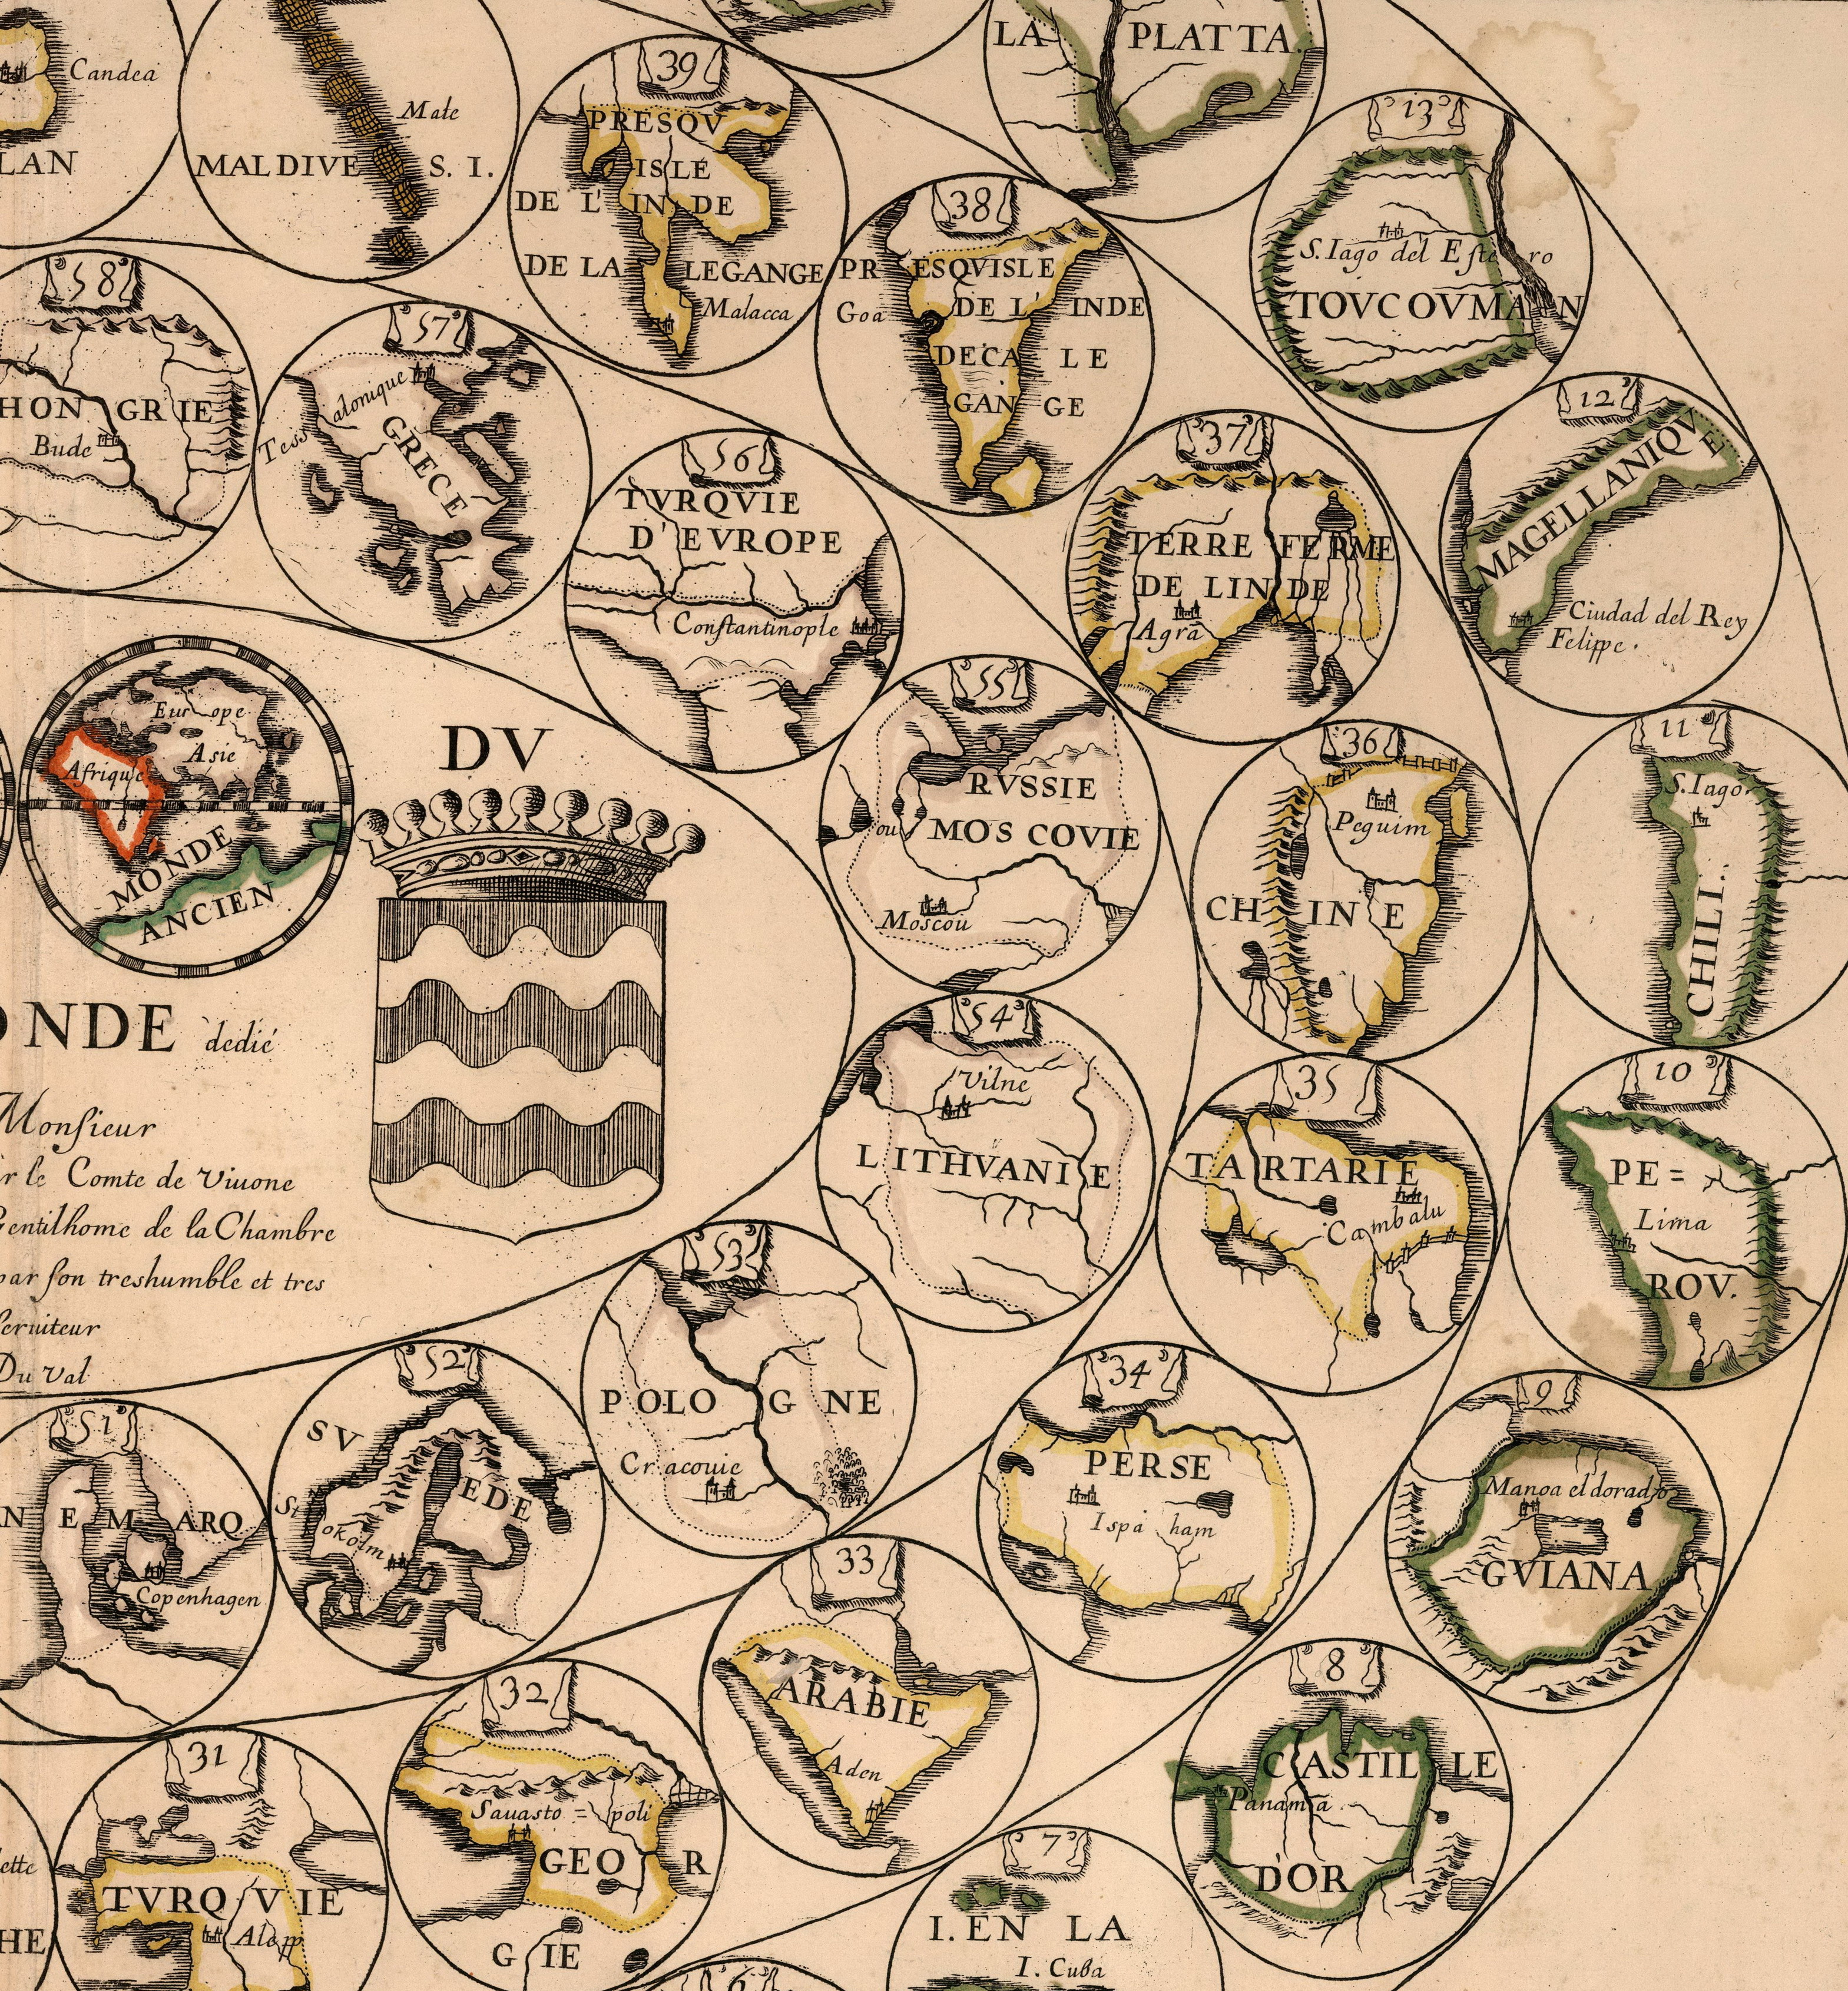 Candea
LAN
Male
MALDIVES. I.
39
PRESQV
ISLE
DE L'INDE
DE LA LEGANGE
Malacca
LA PLATTA.
13
S. Iago del Estero
TOVCOVMAN
38
PRESQVISLE
Goa
DE L'INDE
DECA LE
GANGE
58
HONGRIE
Bude
57
Tessalonique
GRECE
56
TVRQVIE
D'EVROPE
Constantinople
37
TERRE FERME
DE LINDE
Agra
12
MAGELLANIQVE
Ciudad del Rey
Felippe.
Europe
Asie
Afrique
MONDE
ANCIEN
DV
ONDE dedié
Monsieur
r le Comte de Viuone
Gentilhome de la Chambre
par son treshumble et tres
seruiteur
Du Val
55
RVSSIE
ou MOSCOVIE
Moscou
36
Pequim
CHINE
11
S. Iago
CHILI.
54
Vilne
LITHVANIE
35
TARTARIE
Cambalu
10
PE=
Lima
ROV.
53
POLOGNE
Cracouie
52
SVEDE
Stokolm
51
NEMARQ
Copenhagen
34
PERSE
Ispaham
9
Manoa el dorado
GVIANA
33
ARABIE
Aden
32
Sauasto=poli
GEOR
GIE
31
TVRQVIE
Alepp
ette
HE
8
CASTILLE
Panama
D'OR
7
I. EN LA
I. Cuba
6